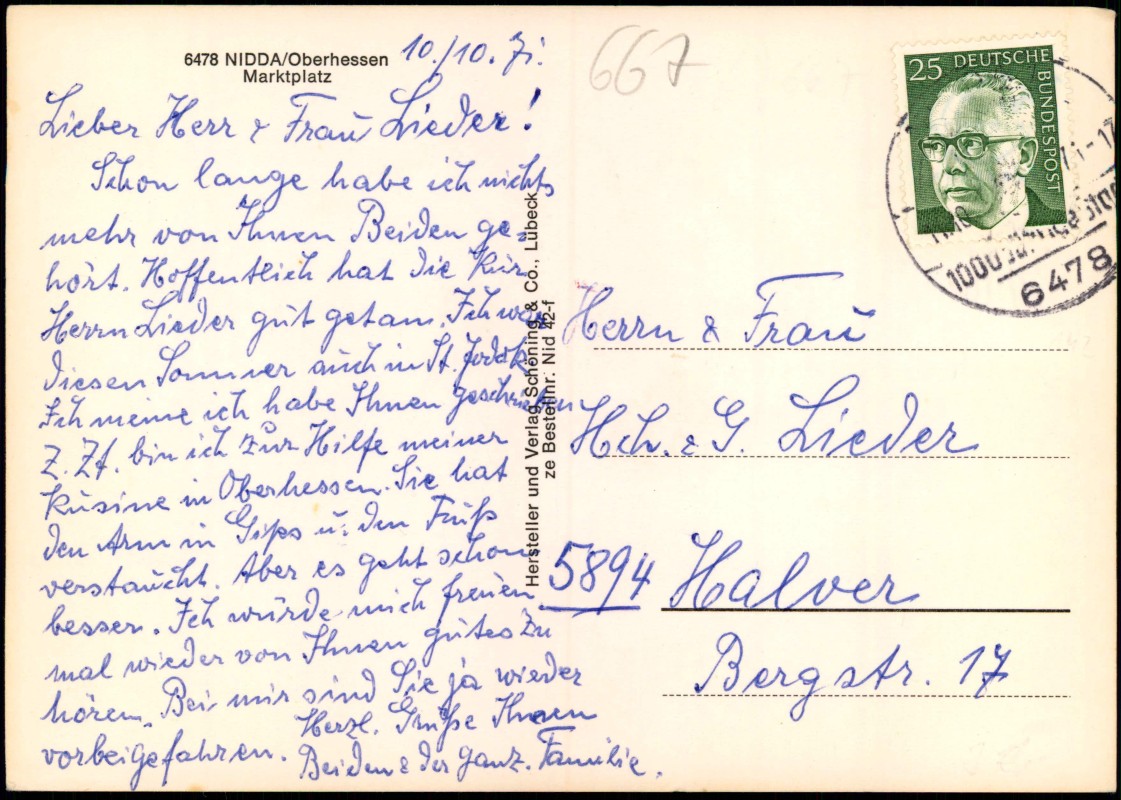 6478 NIDDA/Oberhessen
Marktplatz
10./10. 71.
Lieber Herr & Frau Lieder!
Schon lange habe ich nichts
mehr von Ihnen Beiden ge=
hört. Hoffentlich hat die Kur
Herrn Lieder gut getan. Ich war
diesen Sommer auch in St. Jodok
Ich meine ich habe Ihnen geschrieben
Z. Zt. bin ich zur Hilfe meiner
Kusine in Oberhessen. Sie hat
den Arm in Gips u. den Fuß
verstaucht. Aber es geht schon
besser. Ich würde mich freuen
mal wieder von Ihnen gutes zu
hören. Bei mir sind Sie ja wieder
vorbeigefahren.
Herzl. Grüße Ihnen
Beiden & der ganz. Familie.
Hersteller und Verlag Schöning & Co., Lübeck
ze Bestellnr.: Nid 42-f
667
25 DEUTSCHE
BUNDESPOST
71-17
1000
6478
Herrn & Frau
Hch. & G. Lieder
5894 Halver
Bergstr. 17